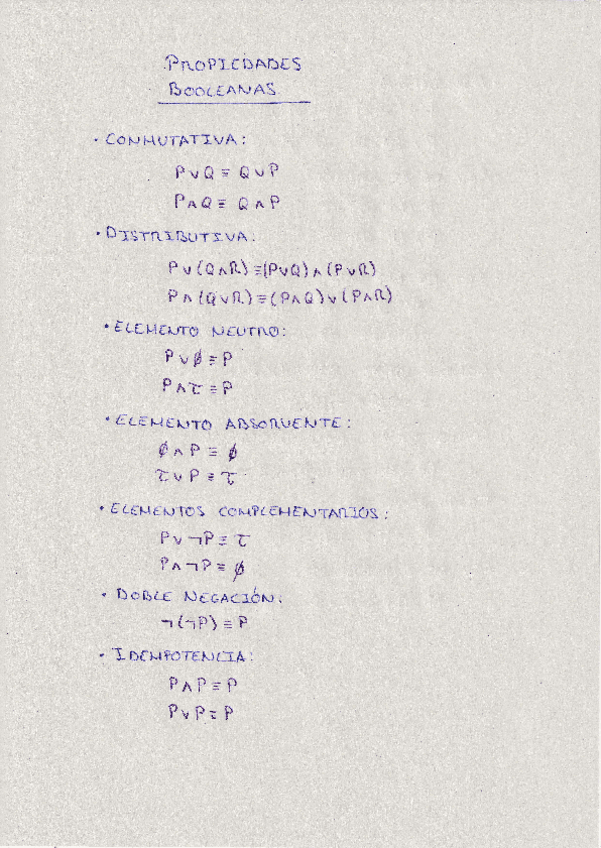 PROPIEDADES
BOOLEANAS
• CONMUTATIVA:
P∨Q ≡ Q∨P
P∧Q ≡ Q∧P
• DISTRIBUTIVA:
P∨(Q∧R) ≡ (P∨Q)∧(P∨R)
P∧(Q∨R) ≡ (P∧Q)∨(P∧R)
• ELEMENTO NEUTRO:
P∨∅ ≡ P
P∧τ ≡ P
• ELEMENTO ABSORVENTE:
∅∧P ≡ ∅
τ∨P ≡ τ
• ELEMENTOS COMPLEMENTARIOS:
P∨¬P ≡ τ
P∧¬P ≡ ∅
• DOBLE NEGACIÓN:
¬(¬P) ≡ P
• IDEMPOTENCIA:
P∧P ≡ P
P∨P ≡ P